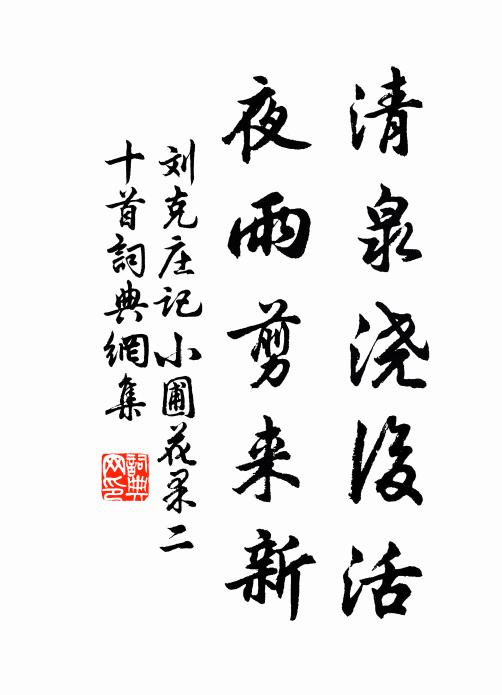 清泉浇後活
夜雨剪来新
刘克庄记小圃花果二
十首詞典網集
詞典
网印